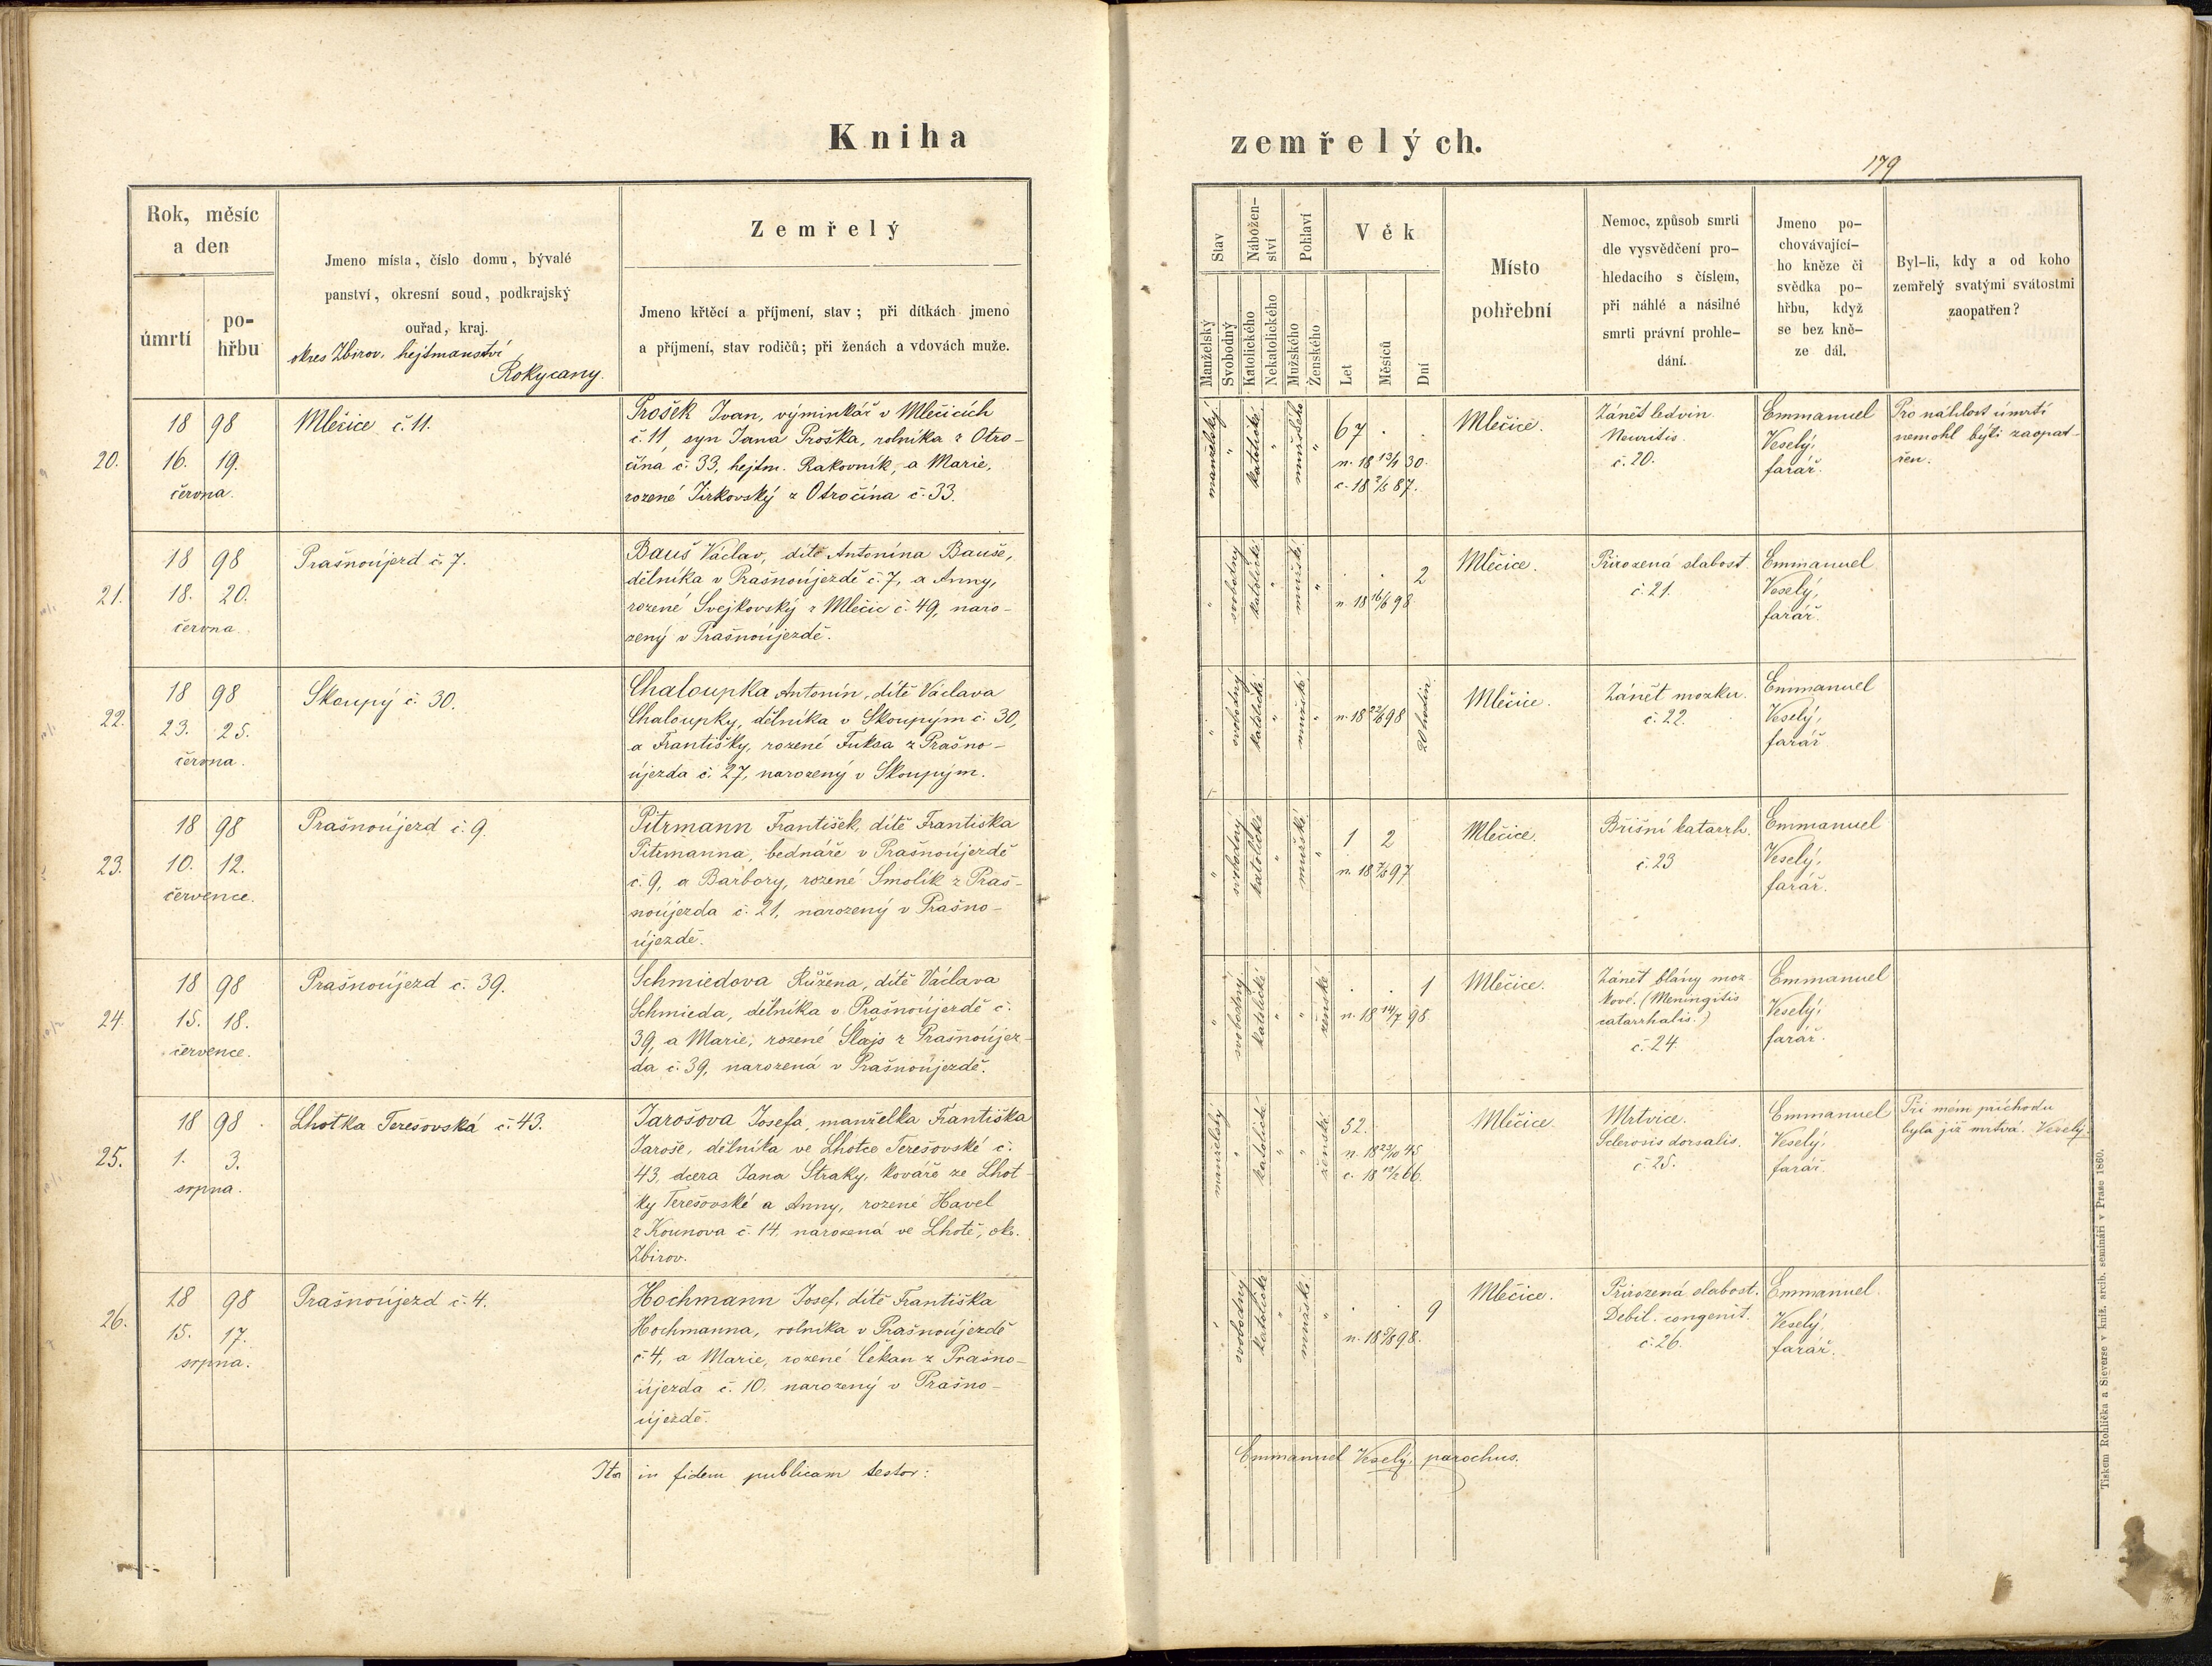 Kniha
zemřelých.
179
Rok, měsíc
a den
úmrtí
po-
hřbu
Jmeno místa, číslo domu, bývalé
panství, okresní soud, podkrajský
ouřad, kraj.
okres Zbirov, hejtmanství
Rokycany.
Zemřelý
Jmeno křtěcí a příjmení, stav; při dítkách jmeno
a příjmení, stav rodičů; při ženách a vdovách muže.
Stav
Manželský
Svobodný
Nábožen-
ství
Katolického
Nekatolického
Pohlaví
Mužského
Ženského
Věk
Let
Měsíců
Dní
Místo
pohřební
Nemoc, způsob smrti
dle vysvědčení pro-
hledacího s číslem,
při náhlé a násilné
smrti právní prohle-
dání.
Jmeno po-
chovávající-
ho kněze či
svědka po-
hřbu, když
se bez kně-
ze dál.
Byl-li, kdy a od koho
zemřelý svatými svátostmi
zaopatřen?
20.
18 98
16. 19.
června.
Mlečice č. 11.
Prošek Ivan, výminkář v Mlečicích
č. 11, syn Jana Proška, rolníka z Otro-
čína č. 33, hejtm. Rakovník, a Marie,
rozené Jirkovský z Otročína č. 33.
manželský " katolické " mužského "
67 . .
n. 18 13/1 30.
c. 18 7/5 87.
Mlečice.
Zánět ledvin.
Neuritis.
č. 20.
Emmanuel
Veselý,
farář.
Pro náhlost úmrtí
nemohl býti zaopat-
řen.
21.
18 98
18. 20.
června.
Prašnoújezd č. 7.
Bauš Václav, dítě Antonína Bauše,
dělníka v Prašnoújezdě č. 7, a Anny,
rozené Svejkovský z Mlečic č. 49, naro-
zený v Prašnoújezdě.
" svobodný katolické " mužské "
. . 2
n. 18 16/6 98
Mlečice.
Přirozená slabost
č. 21.
Emmanuel
Veselý,
farář.
22.
18 98
23. 25.
června.
Skoupý č. 30.
Chaloupka Antonín, dítě Václava
Chaloupky, dělníka v Skoupým č. 30,
a Františky, rozené Fuksa z Prašno-
újezda č. 27, narozený v Skoupým.
" svobodný katolické " mužské "
n. 18 22/6 98
20 hodin
Mlečice.
Zánět mozku.
č. 22.
Emmanuel
Veselý,
farář
23.
18 98
10. 12.
července.
Prašnoújezd č. 9.
Pitrmann František, dítě Františka
Pitrmanna, bednáře v Prašnoújezdě
č. 9, a Barbory, rozené Smolík z Praš-
noújezda č. 21, narozený v Prašno-
újezdě.
" svobodný katolické " mužské "
1 2
Mlečice.
Břišní katarrh.
č. 23
Emmanuel
Veselý,
farář.
24.
18 98
15. 18.
července.
Prašnoújezd č. 39.
Schmiedova Růžena, dítě Václava
Schmieda, dělníka v Prašnoújezdě č.
39, a Marie, rozené Šlajs z Prašnoújez-
da č. 39, narozená v Prašnoújezdě.
" svobodný katolické " " ženské
. . 1
n. 18 14/7 98
Mlečice.
Zánět blány moz-
kové. (Meningitis
catarrhalis.)
č. 24.
Emmanuel
Veselý,
farář.
25.
18 98
1. 3.
srpna.
Lhotka Terešovská č. 43.
Jarošova Josefa, manželka Františka
Jaroše, dělníka ve Lhotce Terešovské č.
43, dcera Jana Straky, kováře ze Lhot-
ky Terešovské a Anny, rozené Havel
z Kounova č. 14, narozená ve Lhotě, okr.
Zbirov.
manželský " katolické " " ženské
52.
n. 18 23/10 45
c. 18 12/2 66.
Mlečice.
Mrtvice.
Sclerosis dorsalis.
č. 25.
Emmanuel
Veselý,
farář.
Při mém příchodu
byla již mrtvá. Veselý.
26.
18 98
15. 17.
srpna.
Prašnoújezd č. 4.
Hochmann Josef, dítě Františka
Hochmanna, rolníka v Prašnoújezdě
č. 4, a Marie, rozené Čekan z Prašno-
újezda č. 10. narozený v Prašno-
újezdě.
" svobodný katolické " mužské "
. . 9
Mlečice.
Přirozená slabost.
Debil. congenit.
č. 26.
Emmanuel
Veselý,
farář.
Ita in fidem publicam testor:
Emmanuel Veselý, parochus.
Tiskem Rohlíčka a Sieverse v kníž. arcib. semináři v Praze 1860.